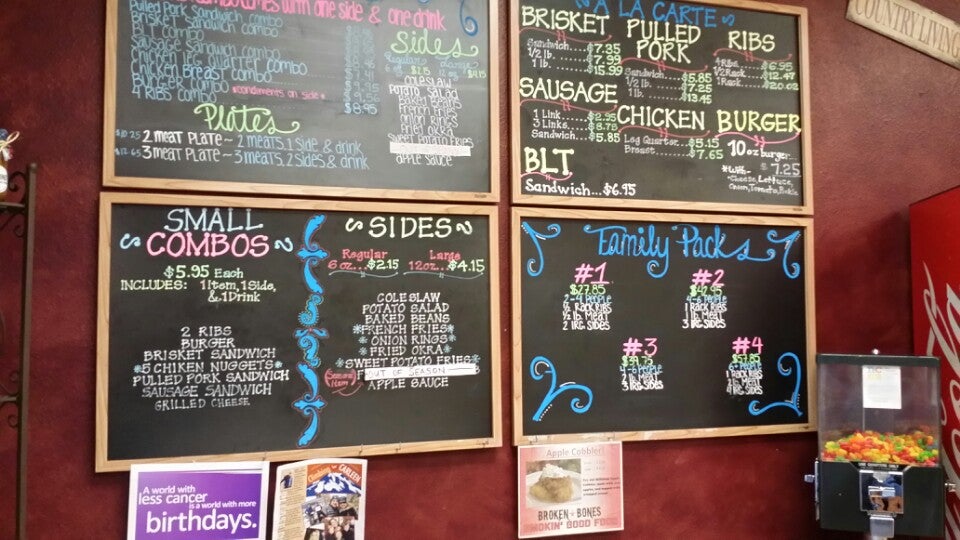 COMBO COMES WITH one side & one drink
Pulled Pork Sandwich combo
Brisket Sandwich combo
BLT combo
Sausage Sandwich combo
Chicken Leg Quarter combo
Chicken Breast combo
Burger combo *condements on side*
4 Ribs combo $8.95
Sides
Regular Large
6 oz $2.15 12 oz $4.15
COLESLAW
POTATO SALAD
Baked Beans
French Fries
Onion Rings
Fried Okra
Sweet Potato Fries
apple sauce
Plates
$10.25 2 MEAT PLATE ~ 2 meats, 1 side & drink
$12.65 3 MEAT PLATE ~ 3 meats, 2 sides & drink
A LA CARTE
BRISKET
Sandwich.....$7.35
1/2 lb.....$7.99
1 lb.....$15.99
SAUSAGE
1 Link.....$2.95
3 Links.....$8.75
Sandwich.....$5.85
BLT
Sandwich...$6.95
PULLED PORK
Sandwich.....$5.85
1/2 lb.....$7.25
1 lb.....$13.45
CHICKEN
Leg Quarter.....$5.15
Breast.....$7.65
RIBS
4 Ribs.....$6.95
1/2 Rack.....$12.47
1 Rack.....$20.02
BURGER
10 oz burger
*With~ $7.25
~Cheese, Lettuce,
Onion, Tomato, Pickle
COUNTRY LIVING
SMALL
COMBOS
$5.95 Each
INCLUDES: 1 Item, 1 Side,
& 1 Drink
2 RIBS
BURGER
BRISKET SANDWICH
5 CHIKEN NUGGETS
PULLED PORK SANDWICH
SAUSAGE SANDWICH
GRILLED CHEESE
SIDES
Regular Large
6 oz...$2.15 12 oz...$4.15
COLESLAW
POTATO SALAD
BAKED BEANS
*FRENCH FRIES*
*ONION RINGS*
*FRIED OKRA*
*SWEET POTATO FRIES*
Seasonal Item OUT OF SEASON
APPLE SAUCE
Family Packs
#1
$27.85
2-4 People
1/2 Rack Ribs
1/2 lb. Meat
2 lrg. Sides
#2
4-6 People
1 Rack Ribs
1 lb. Meat
3 lrg. Sides
#3
4-6 People
1 lb Meat
4 lrg Sides
#4
$57.85
6+ People
1 Rack Ribs
4 lrg Sides
A world with
less cancer
is a world with more
birthdays.
Cooking with CARLEEN
Apple Cobbler!
BROKEN BONES
SMOKIN' GOOD FOOD
USE QUARTERS ONLY
Coca-Co